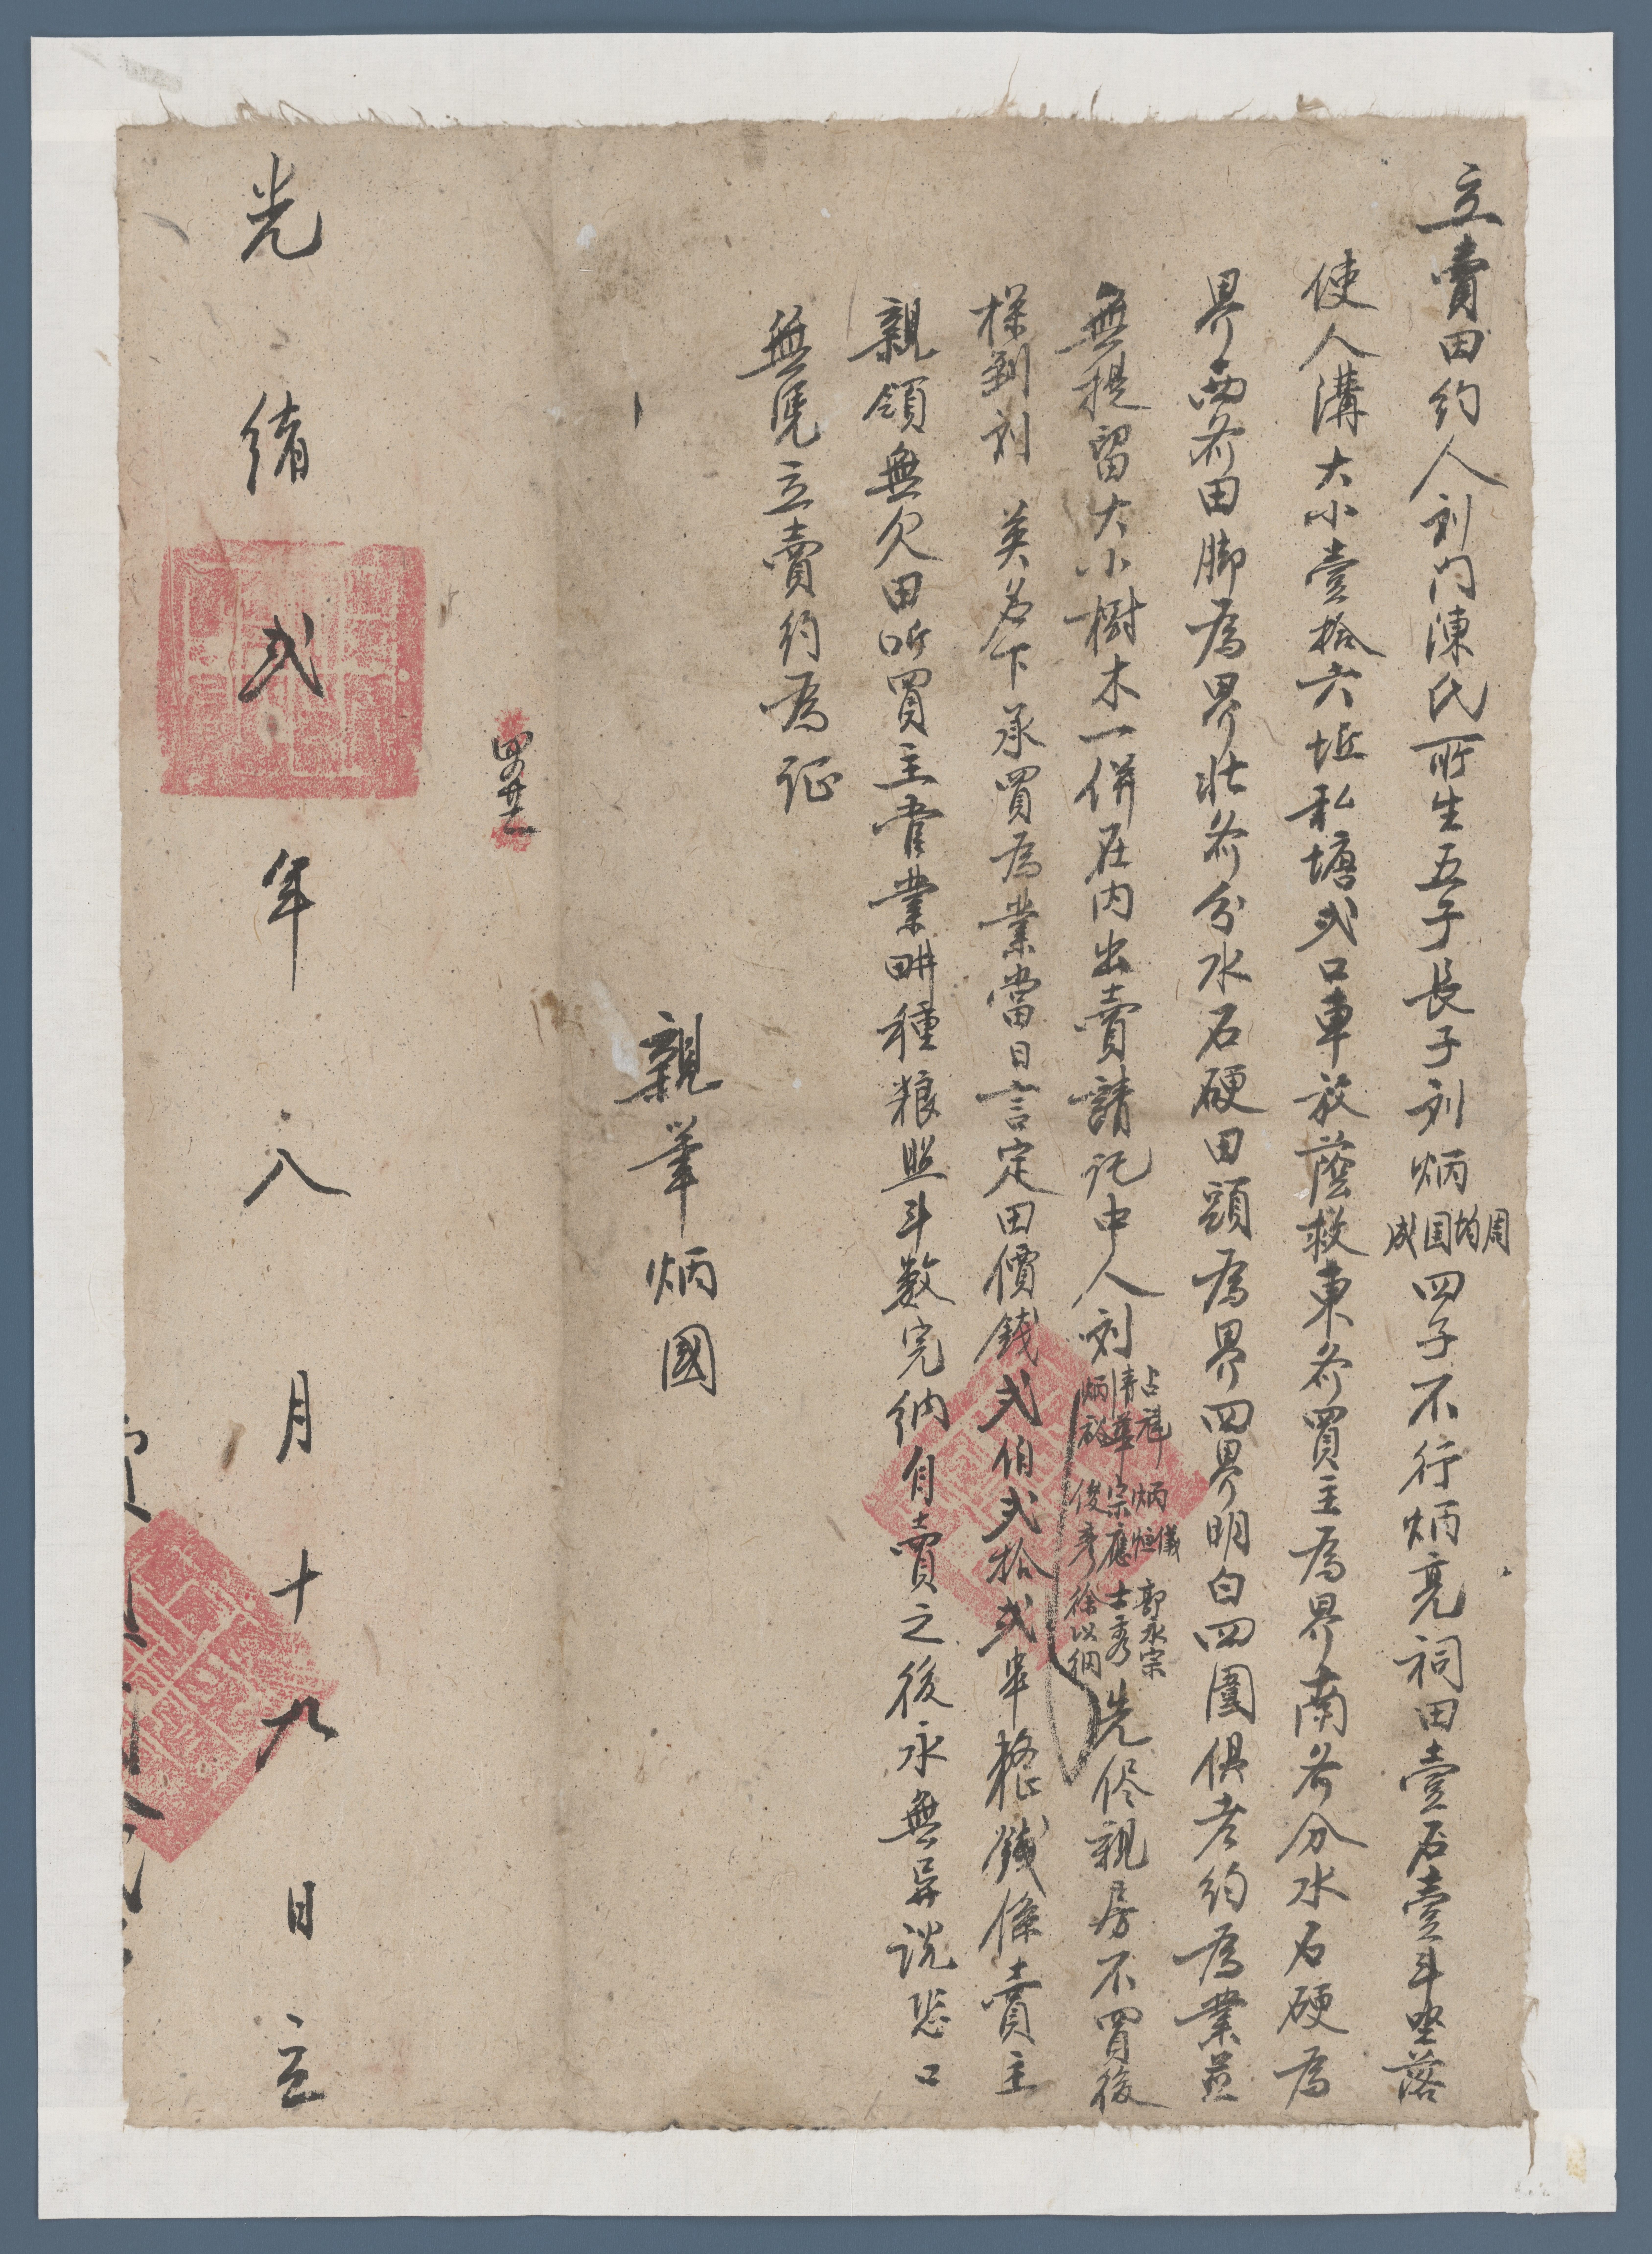 立賣田約人刘门陳氏所生五子長子刘炳周均国成四子不行炳亮祠田壹石壹斗坐落
使人溝大小壹拾六坵私塘弍口車放蔭救東斧買主為界南斧分水石硬為
界西斧田脚為界北斧分水石硬田頭為界四界明白四圍俱老約為業並
無提留大小樹木一併在内出賣請託中人刘占禕清華炳啟炳恒儀宗應俊彦郭永宗士秀徐以綱先侭親房不買後
探到刘英名下承買為業當日言定田價錢弍伯弍拾弍串整錢係賣主
親領無欠田听買主耆業畊種粮照斗數完纳自賣之後永無异説恐口
無凭立賣約為証
親筆炳國
光緒弍年八月十九日立